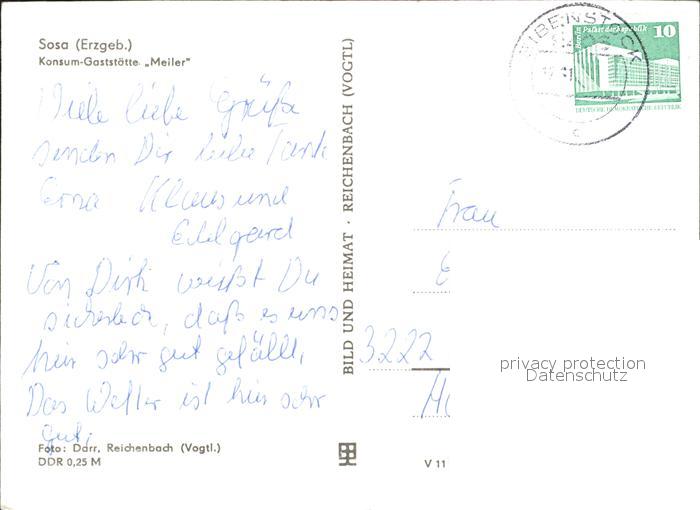 Sosa (Erzgeb.)
Konsum-Gaststätte „Meiler"
Viele liebe Grüße
senden Dir liebe Tante
Erna Klaus und
Edelgard
Von Dirk weißt Du
sicherlich, daß es uns
hier sehr gut gefällt,
Das Wetter ist hier sehr
gut,
Foto: Darr, Reichenbach (Vogtl.)
DDR 0,25 M
BILD UND HEIMAT · REICHENBACH (VOGTL)
V 11
EIBENSTOCK
c
Berlin Palast der Republik 10
DEUTSCHE DEMOKRATISCHE REPUBLIK
Frau
3222
privacy protection
Datenschutz